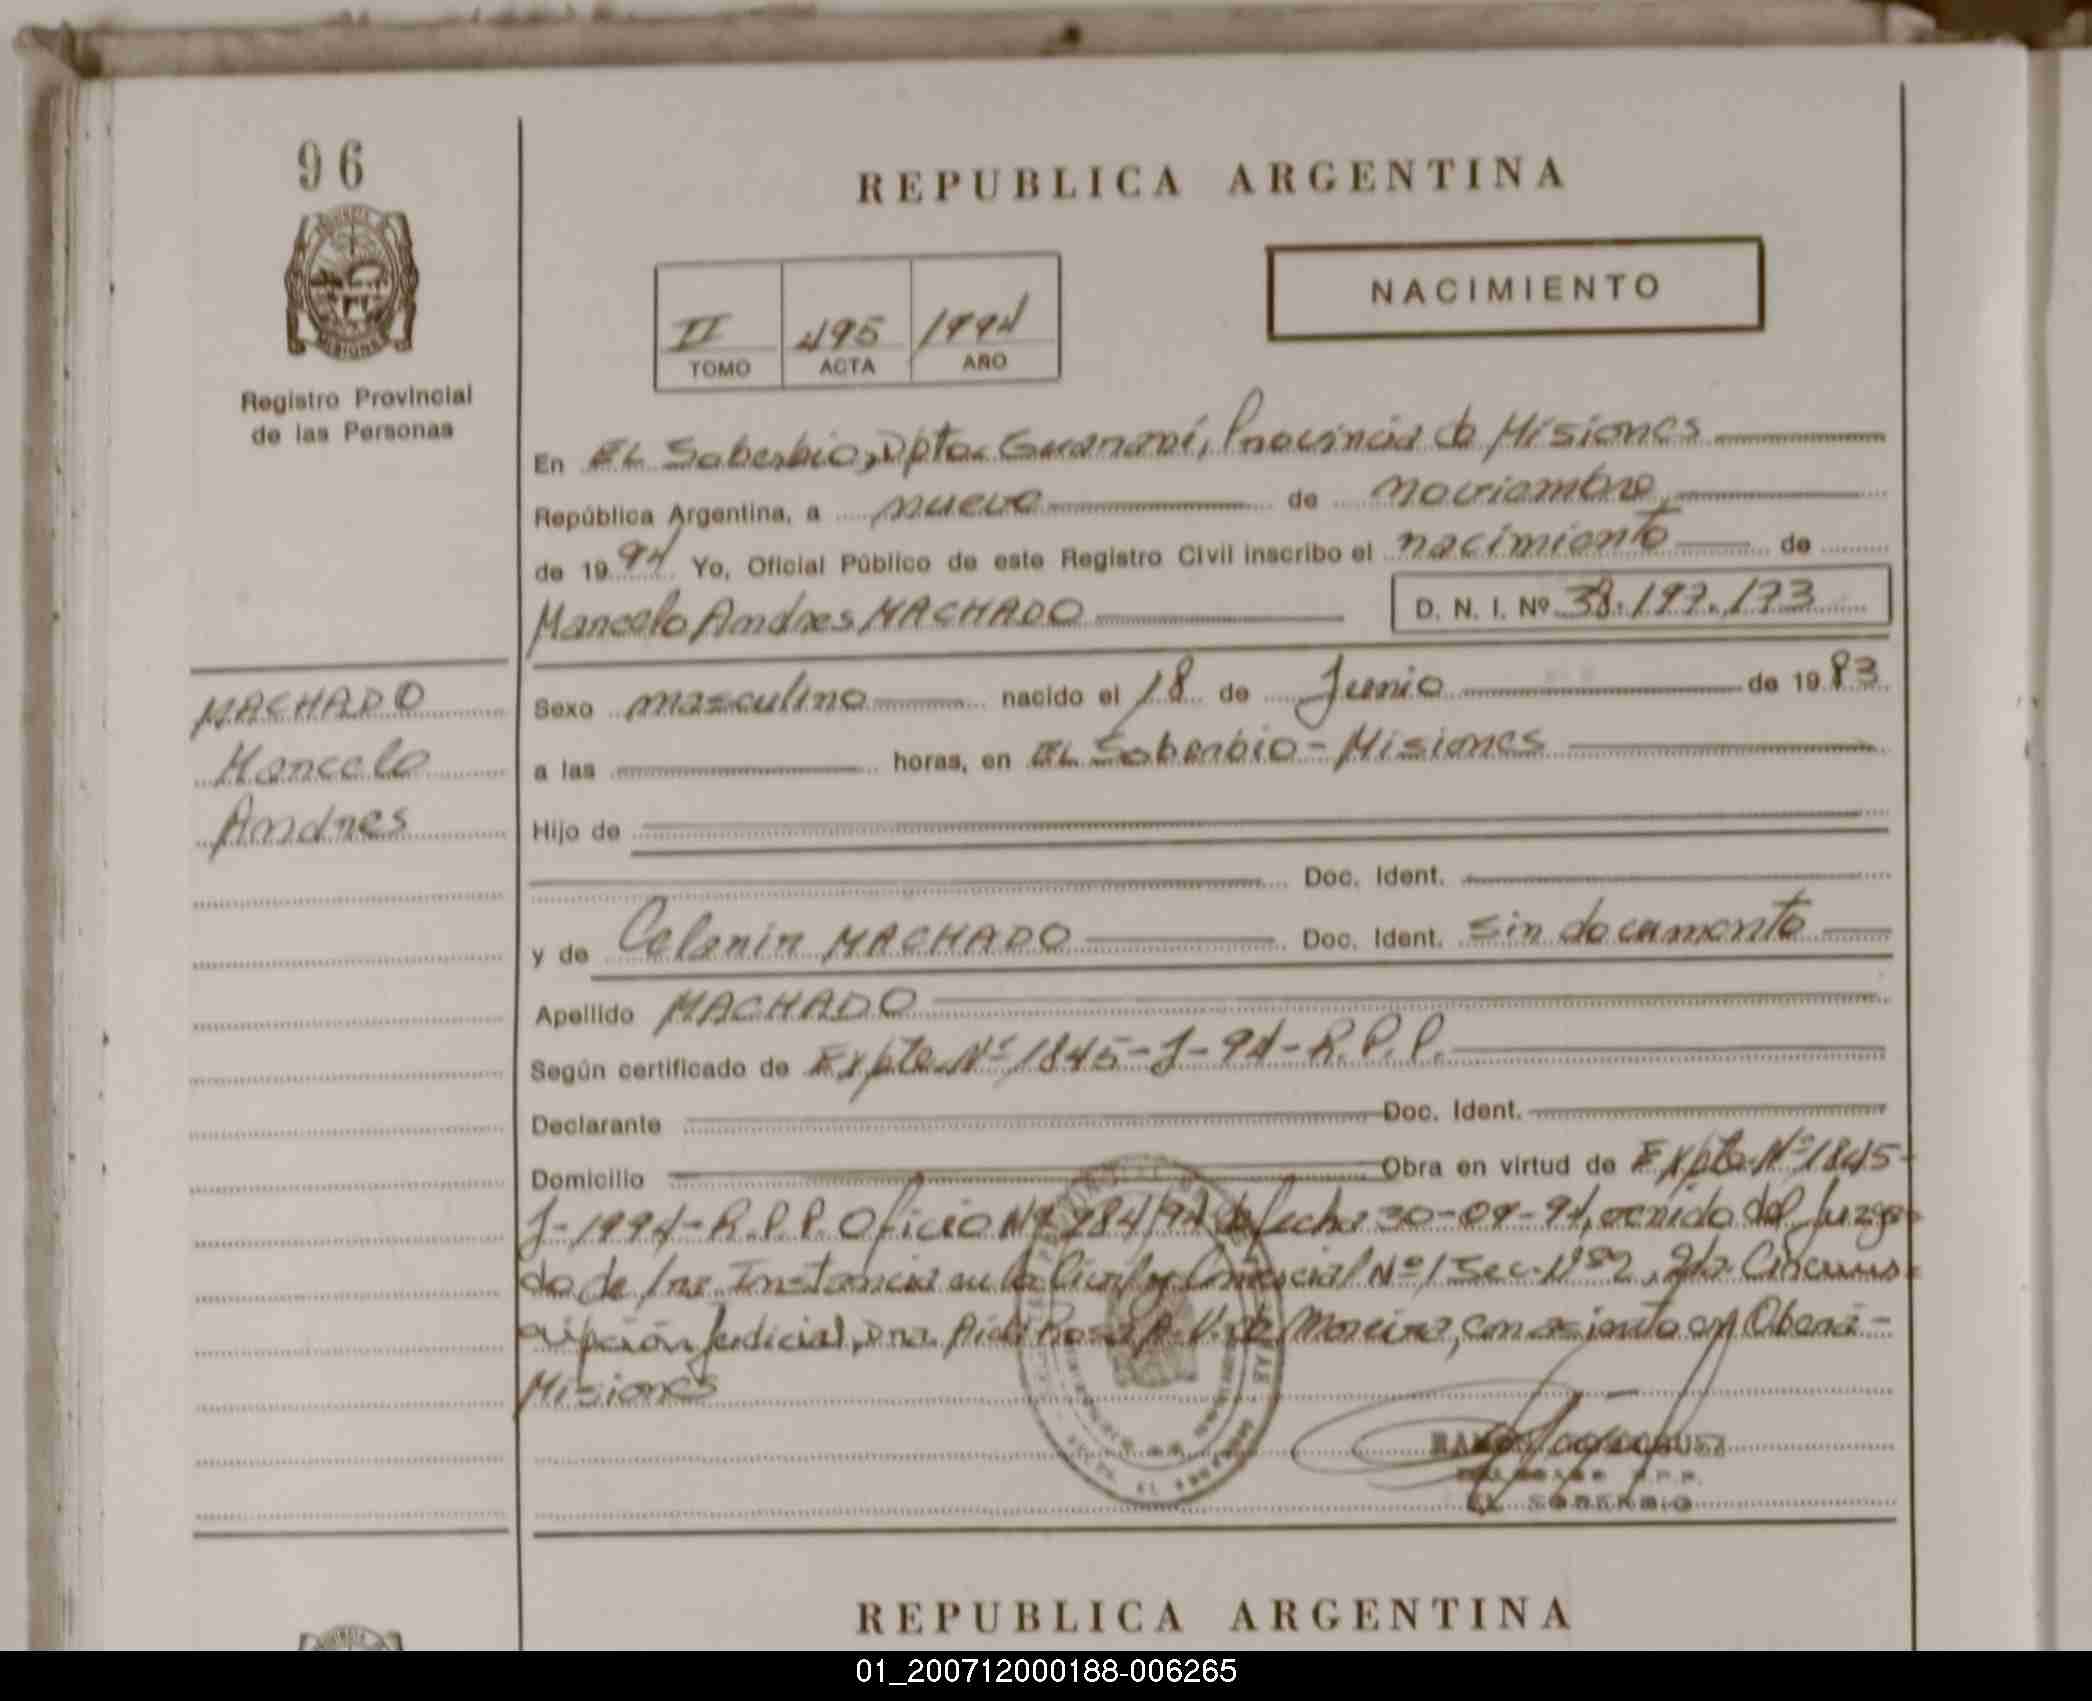 96
REPUBLICA ARGENTINA
NACIMIENTO
II 495 1994
TOMO ACTA AÑO
Registro Provincial
de las Personas
En El Soberbio, Dpto. Guaraní, Provincia de Misiones
República Argentina, a nueve de noviembre
de 1994 Yo, Oficial Público de este Registro Civil inscribo el nacimiento de
Marcelo Andres MACHADO D. N. I. Nº 38.197.173
MACHADO
Marcelo
Andres
Sexo masculino nacido el 18 de Junio de 1983
a las horas, en El Soberbio - Misiones
Hijo de
Doc. Ident.
y de MACHADO Doc. Ident. sin documento
Apellido MACHADO
Según certificado de Expte. Nº 1845-J-94-R.P.P.
Declarante Doc. Ident.
Domicilio Obra en virtud de Expte. Nº 1845-
J-1994-R.P.P. Oficio Nº 284/94 de fecha 30-09-94, venido del Juzga-
do de 1ra Instancia en lo Civil y Comercial Nº 1 Sec. 2da Circuns-
cripción Judicial, Dra. Rosa de Moreira, con asiento en Oberá-
Misiones
EL SOBERBIO
REPUBLICA ARGENTINA
01_200712000188-006265